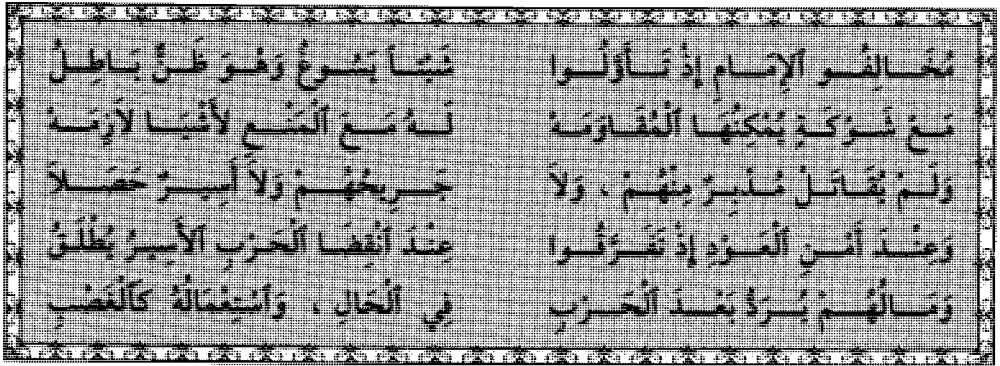 مُخَالِفُو الإِمَامِ إِذْ تَأَوَّلُوا شَيْئاً يَسُوغُ وَهْوَ ظَنٌّ بَاطِلُ
مَعْ شَوْكَةٍ يُمْكِنُهَا ٱلْمُقَاوَمَهْ لَهُ مَعَ ٱلْمَنْعِ لأَشْيَا لاَزِمَهْ
وَلَمْ يُقَاتَلْ مُدْبِرٌ مِنْهُمْ ، وَلاَ جَرِيحُهُمْ وَلاَ أَسِيرٌ حَصَلاَ
وَعِنْدَ أَمْنِ ٱلْعَوْدِ إِذْ تَفَرَّقُوا عِنْدَ ٱنْقِضَا ٱلْحَرْبِ ٱلأَسِيرُ يُطْلَقُ
وَمَالُهُمْ يُرَدُّ بَعْدَ ٱلْحَرْبِ فِي ٱلْحَالِ ، وَٱسْتِعْمَالُهُ كَٱلْغَصْبِ